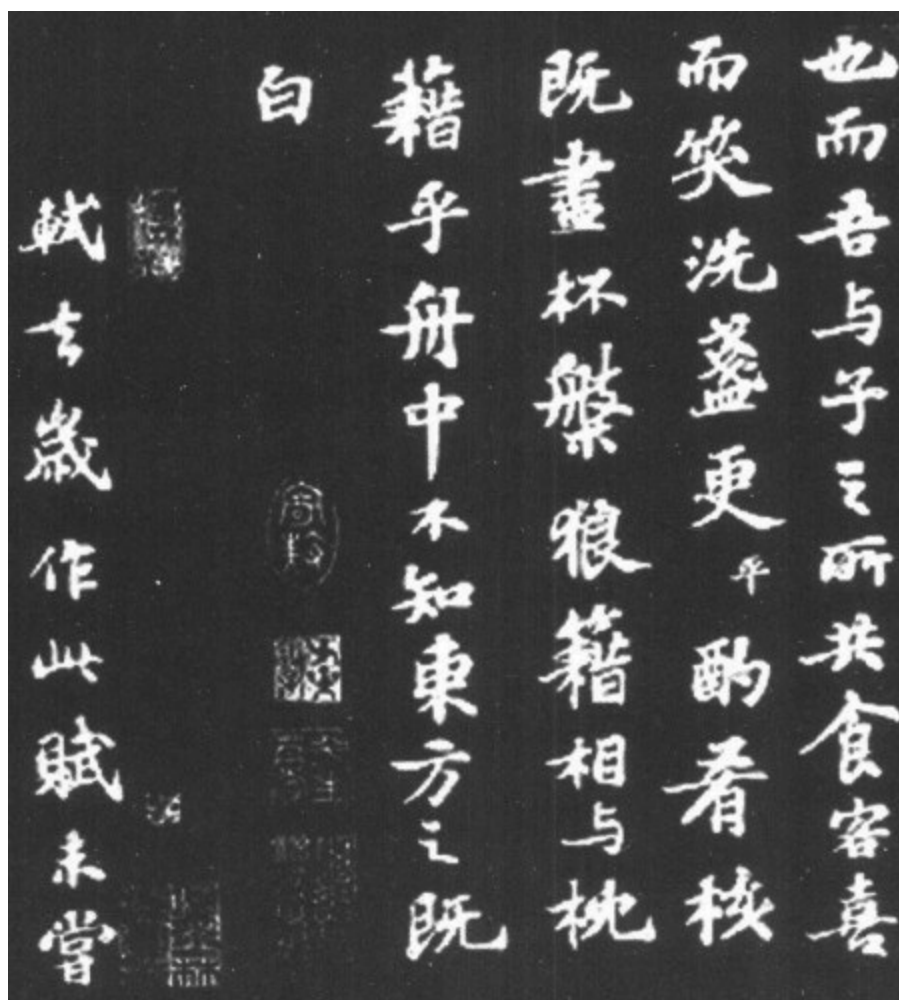 也而吾与子之所共食客喜
而笑洗盏更平酌肴核
既盡杯槃狼籍相与枕
藉乎舟中不知東方之既
白
軾去歲作此賦未嘗